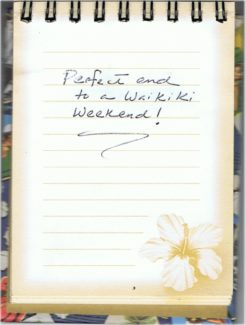 Perfect end
to a Waikiki
Weekend!